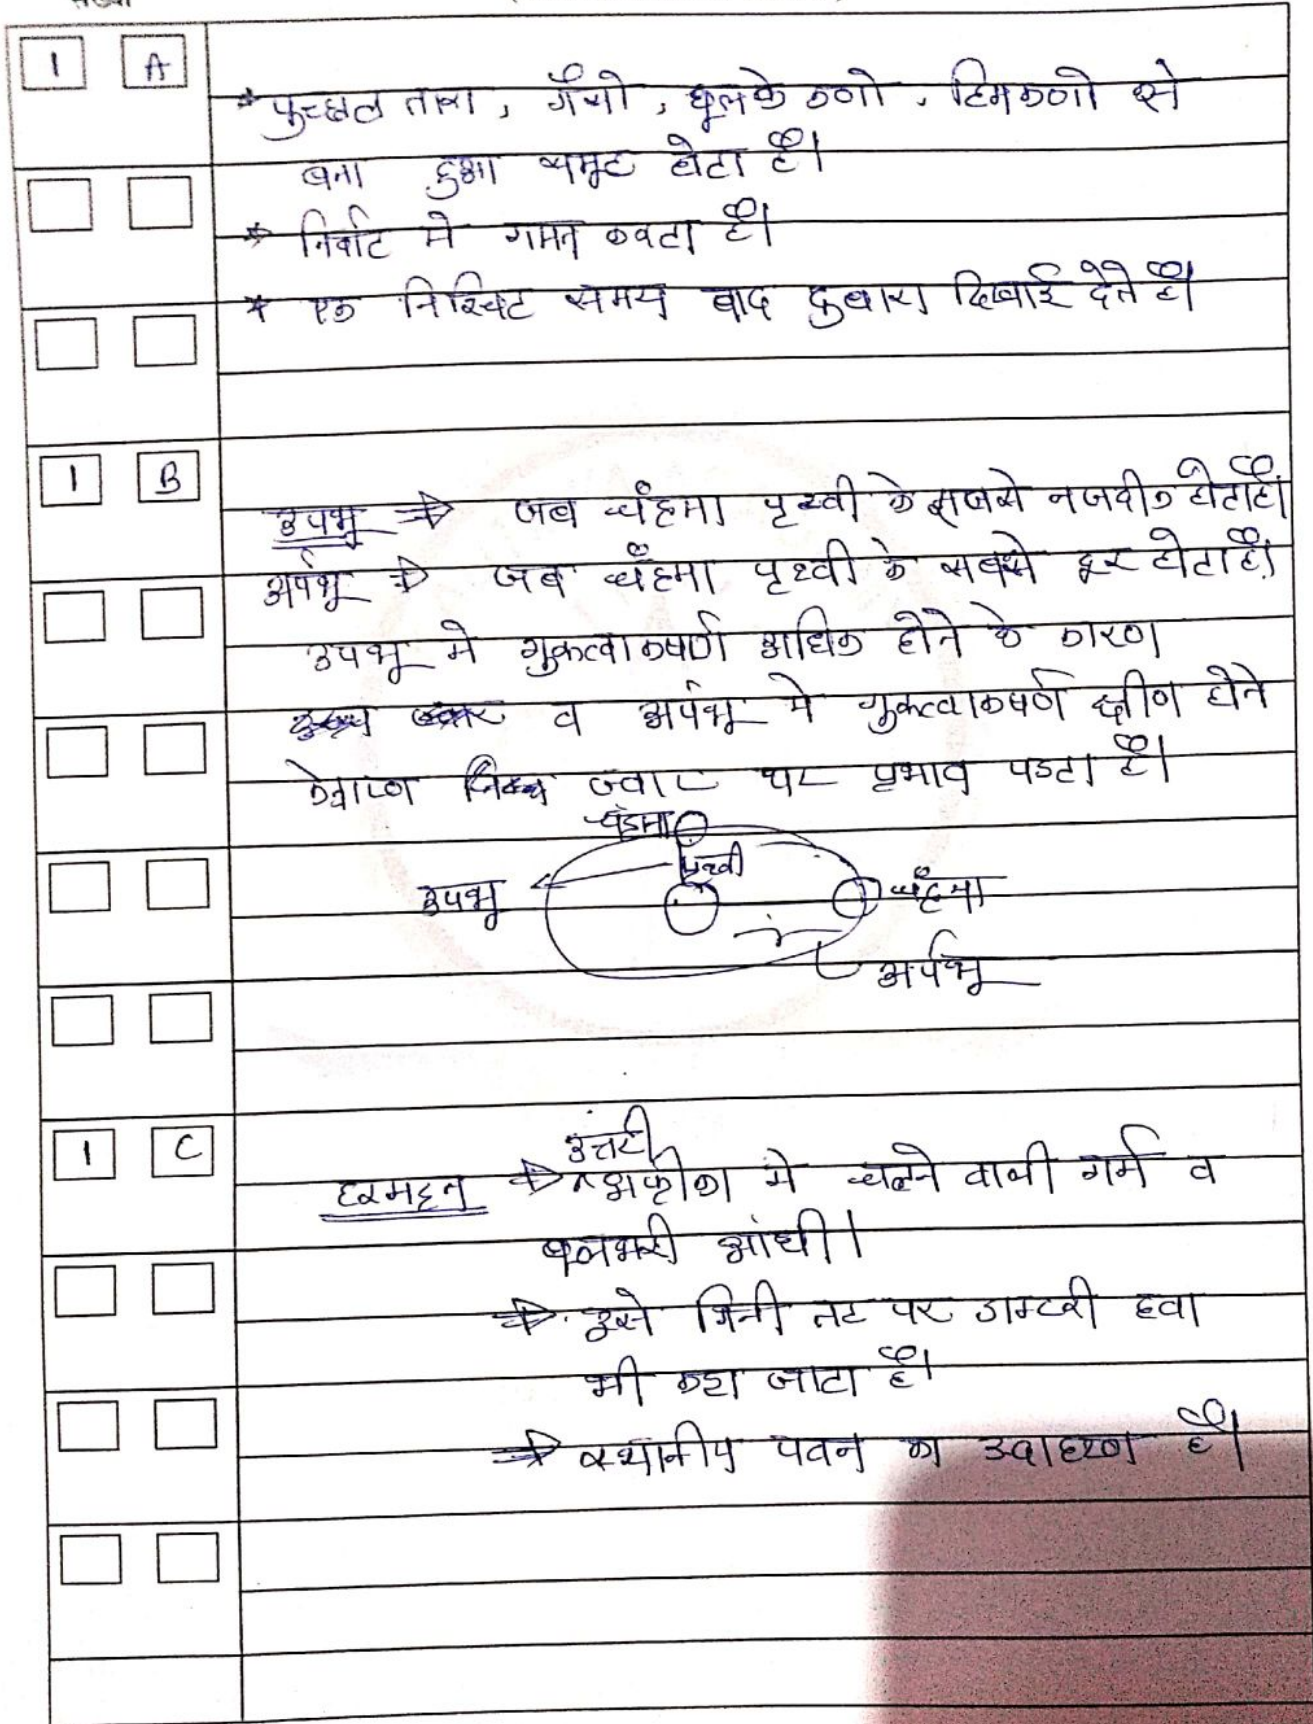 1 A
* पुच्छल तारा, गैसो, धूलके कणो, हिमकणो से
बना हुआ समूह होता है।
* निर्वात मे गमन करता है।
* एक निश्चित समय बाद दुबारा दिखाई देते है।
1 B
उपभू → जब चंद्रमा पृथ्वी के सबसे नजदीक होता है।
अपभू → जब चंद्रमा पृथ्वी के सबसे दूर होता है।
उपभू मे गुरुत्वाकर्षण अधिक होने के कारण
व अपभू मे गुरुत्वाकर्षण क्षीण होने
के कारण ज्वार पर प्रभाव पडता है।
चंद्रमा
पृथ्वी
उपभू
चंद्रमा
अपभू
1 C
उत्तरी
हरमट्टन → ^ अफ्रीका मे चलने वाली गर्म व
धूलभरी आंधी।
→ इसे गिनी तट पर डाक्टरी हवा
भी कहा जाता है।
→ स्थानीय पवन का उदाहरण है।